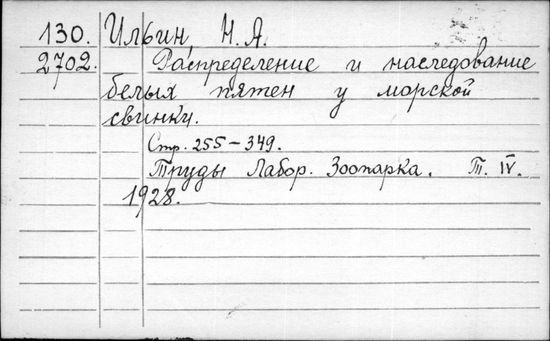 130. Ильин Н. А.
2702. Распределение и наследование
белых пятен у морской
свинки.
Стр. 255-349.
Труды Лабор. Зоопарка. Т. IV.
1928.